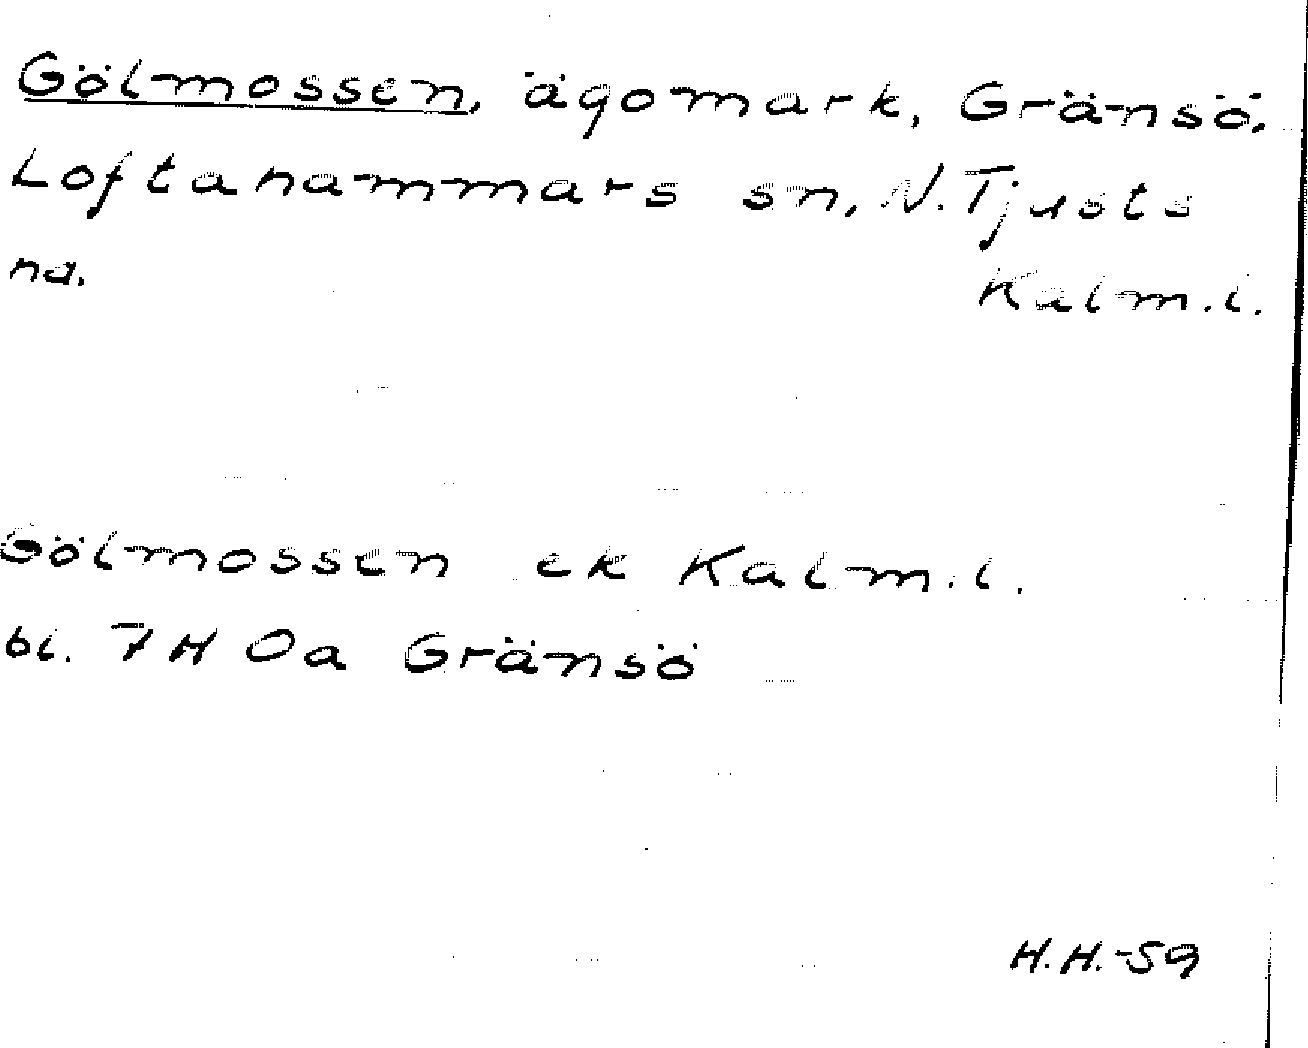 Gölmossen, ägomark, Gränsö.
Loftahammars sn, N. Tjusts
hd. Kalm. l.
Gölmossen ek Kalm. l.
bl. 7H 0a Gränsö
H.H.-59